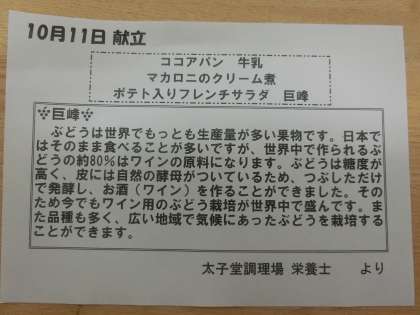 10月11日 献立
ココアパン 牛乳
マカロニのクリーム煮
ポテト入りフレンチサラダ 巨峰
巨峰
ぶどうは世界でもっとも生産量が多い果物です。日本で
はそのまま食べることが多いですが、世界中で作られるぶ
どうの約80%はワインの原料になります。ぶどうは糖度が
高く、皮には自然の酵母がついているため、つぶしただけ
で発酵し、お酒(ワイン)を作ることができました。そのた
め今でもワイン用のぶどう栽培が世界中で盛んです。ま
た品種も多く、広い地域で気候にあったぶどうを栽培する
ことができます。
太子堂調理場 栄養士 より